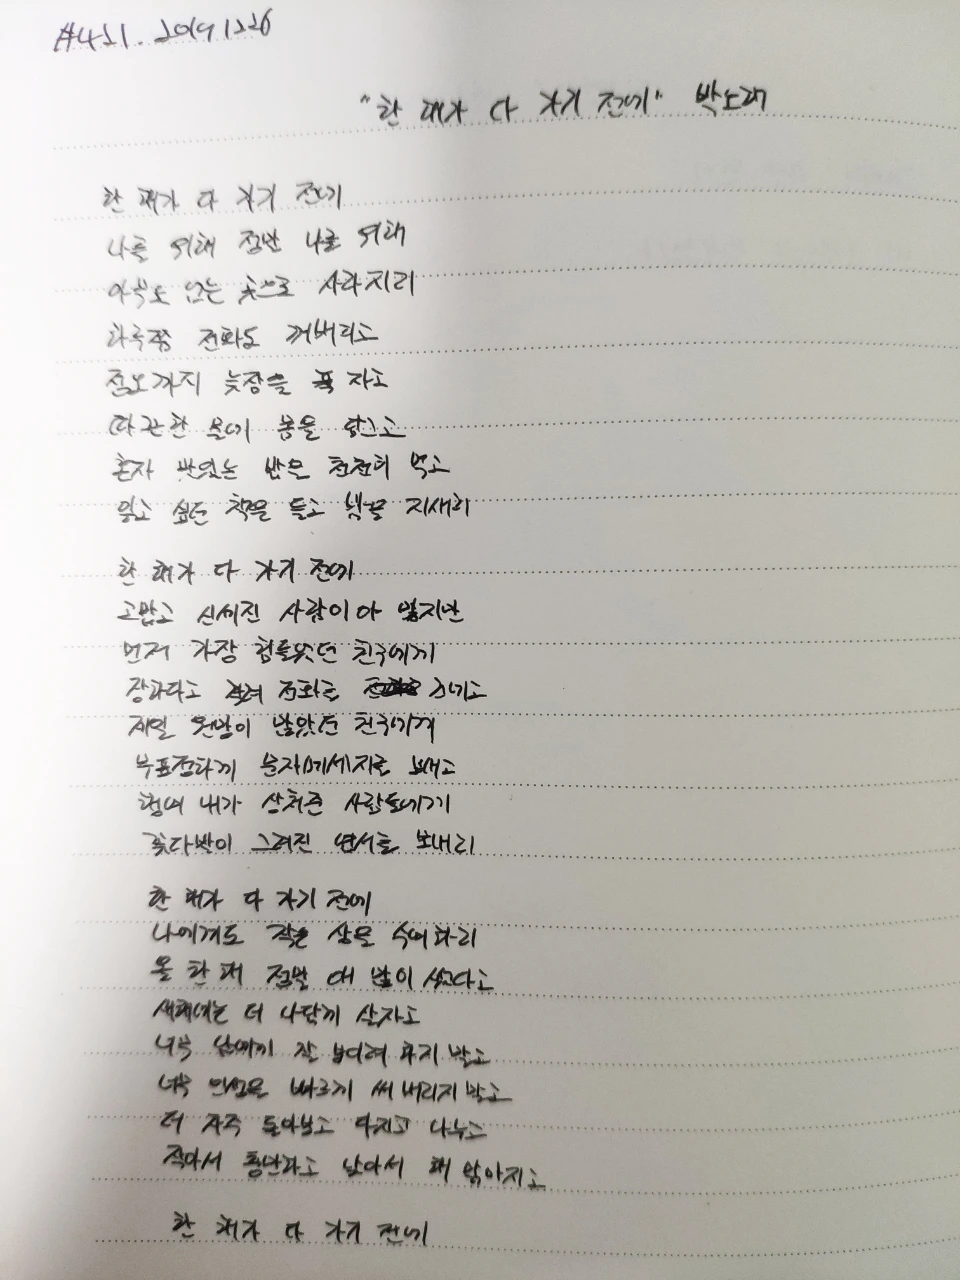 #421. 20191226
"한 해가 다 가기 전에" 박노해
한 해가 다 가기 전에
나를 위해 정말 나를 위해
아무도 없는 곳으로 사라지리
하루쯤 전화도 꺼버리고
정오까지 늦잠을 푹 자고
따끈한 물에 몸을 담그고
혼자 맛있는 밥을 천천히 먹고
읽고 싶던 책을 들고 밤을 지새리
한 해가 다 가기 전에
고맙고 신세진 사람이야 많지만
먼저 가장 힘들었던 친구에게
장하다고 격려 전화를 하고
제일 원망이 많았던 친구에게
무표정하게 문자메세지를 보내고
행여 내가 상처준 사람들에게
꽃다발이 그려진 엽서를 보내리
한 해가 다 가기 전에
나에게도 작은 상을 수여하리
올 한 해 정말 애 많이 썼다고
새해에는 더 나답게 살자고
너무 남에게 잘 보이려 하지 말고
너무 인생을 빠르게 써 버리지 말고
더 자주 돌아보고 다지고 나누고
작아서 풍년하고 낮아서 해 맑아지고
한 해가 다 가기 전에